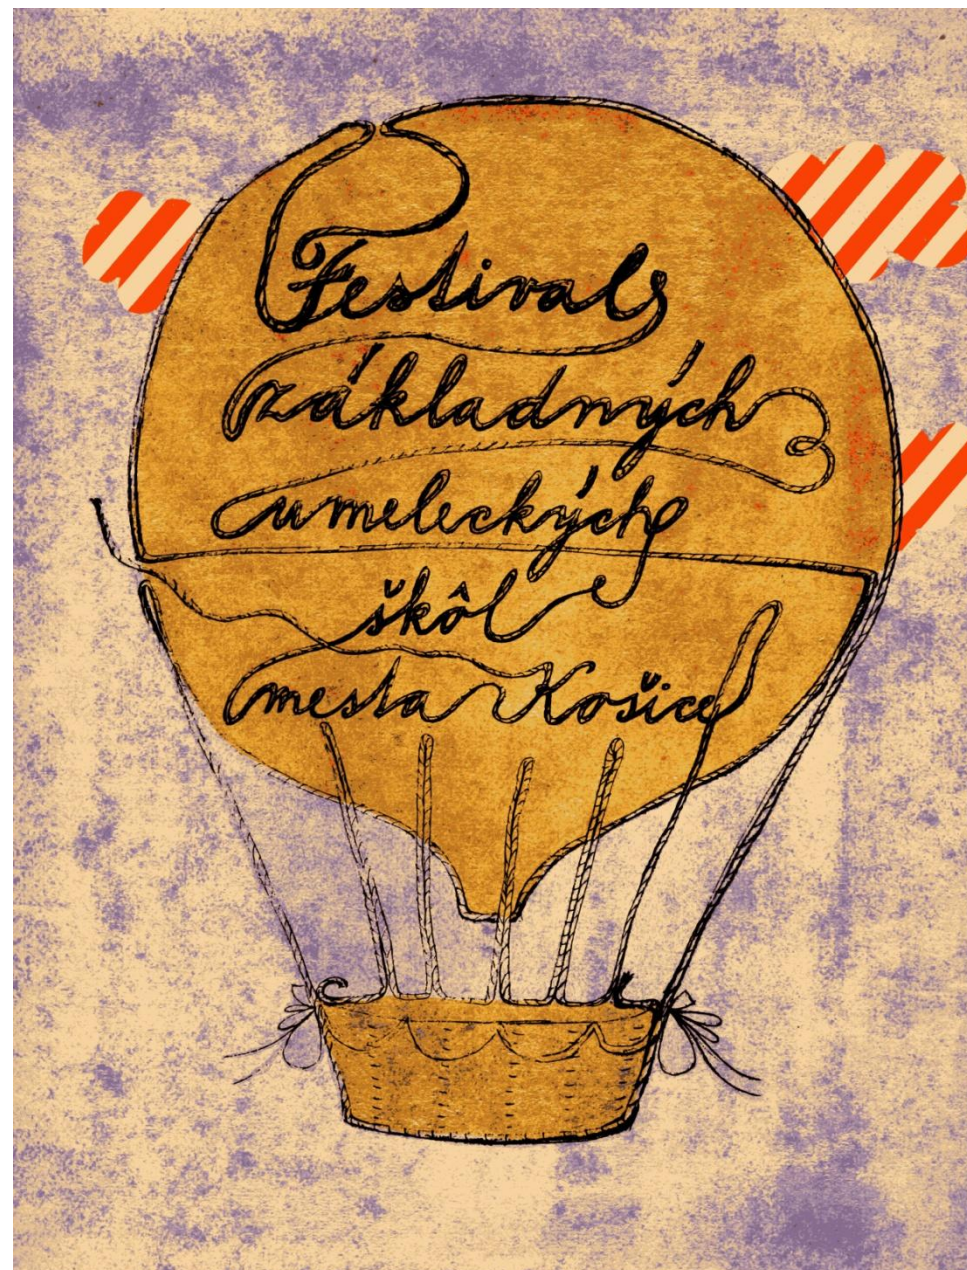 Festival
základných
umeleckých
škôl
mesta Košice